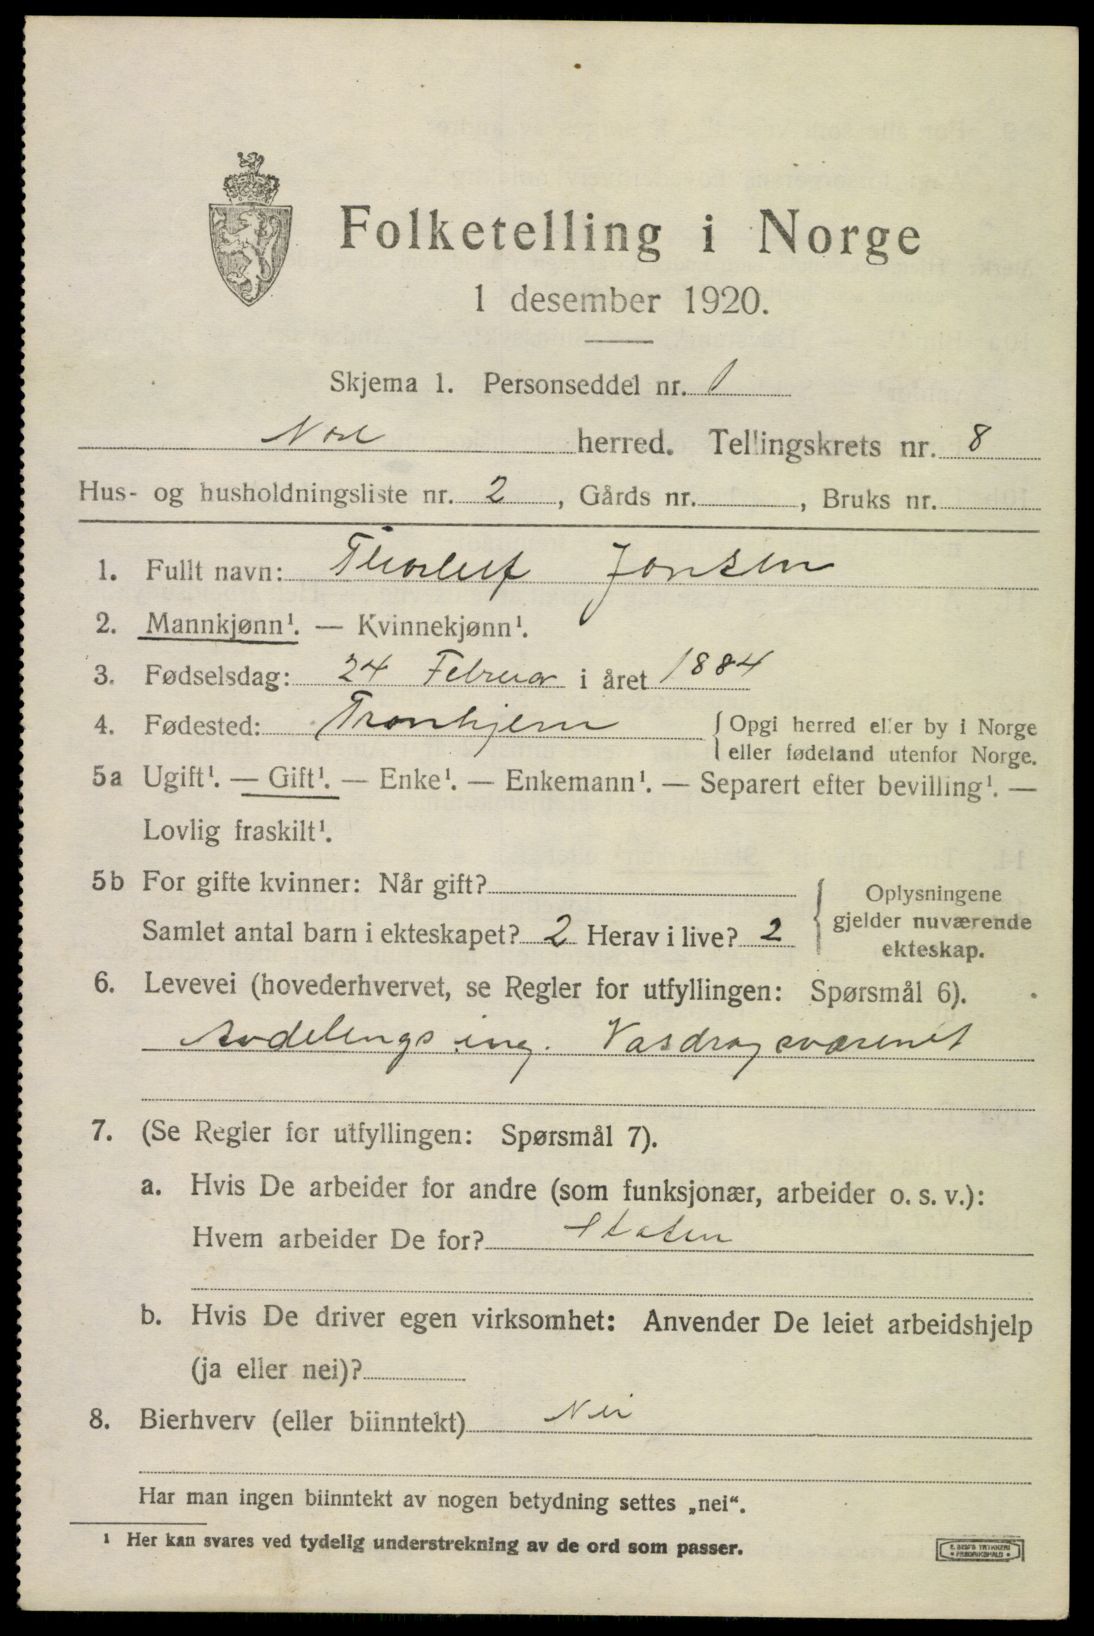 Folketelling i Norge
1 desember 1920.
Skjema 1. Personseddel nr. 1
Nore herred. Tellingskrets nr. 8
Hus- og husholdningsliste nr. 2, Gårds nr. , Bruks nr.
1. Fullt navn: Thorleif Jonsen
2. Mannkjønn¹. — Kvinnekjønn¹.
3. Fødselsdag: 24 Februar i året 1884
4. Fødested: Tronhjem { Opgi herred eller by i Norge
eller fødeland utenfor Norge.
5a Ugift¹. — Gift¹. — Enke¹. — Enkemann¹. — Separert efter bevilling¹. —
Lovlig fraskilt¹.
5b For gifte kvinner: Når gift?
Samlet antal barn i ekteskapet? 2 Herav i live? 2
{ Oplysningene
gjelder nuværende
ekteskap.
6. Levevei (hovederhvervet, se Regler for utfyllingen: Spørsmål 6).
Avdelings ing. Vasdragsvæsenet
7. (Se Regler for utfyllingen: Spørsmål 7).
a. Hvis De arbeider for andre (som funksjonær, arbeider o. s. v.):
Hvem arbeider De for? Staten
b. Hvis De driver egen virksomhet: Anvender De leiet arbeidshjelp
(ja eller nei)?
8. Bierhverv (eller biinntekt) Nei
Har man ingen biinntekt av nogen betydning settes „nei“.
¹ Her kan svares ved tydelig understrekning av de ord som passer.